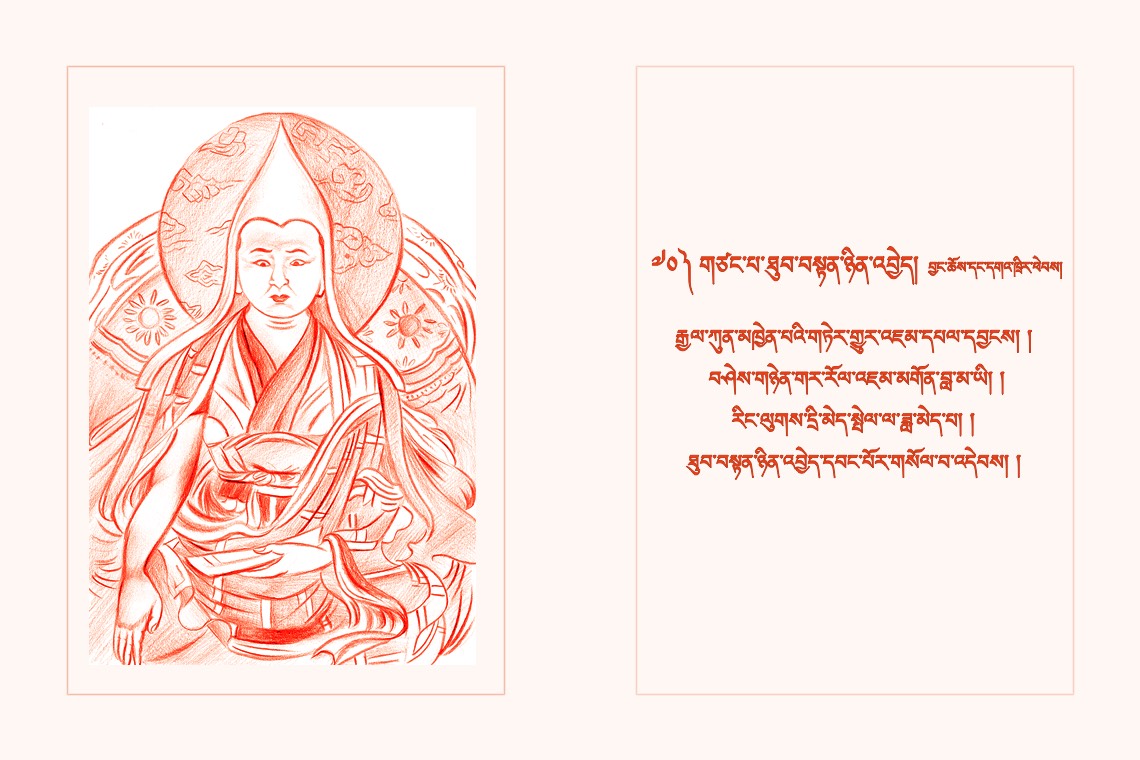 ༧༠༽ གཙང་པ་ཐུབ་བསྟན་ཉིན་འབྱེད། བྱང་ཆོས་དང་དགའ་ཁྲིར་ཕེབས།
རྒྱལ་ཀུན་མཁྱེན་པའི་གཏེར་གྱུར་འཇམ་དཔལ་དབྱངས། །
བཤེས་གཉེན་གར་རོལ་འཇམ་མགོན་བླ་མ་ཡི། །
རིང་ལུགས་དྲི་མེད་སྤེལ་ལ་ཟླ་མེད་པ། །
ཐུབ་བསྟན་ཉིན་འབྱེད་དབང་པོར་གསོལ་བ་འདེབས། །